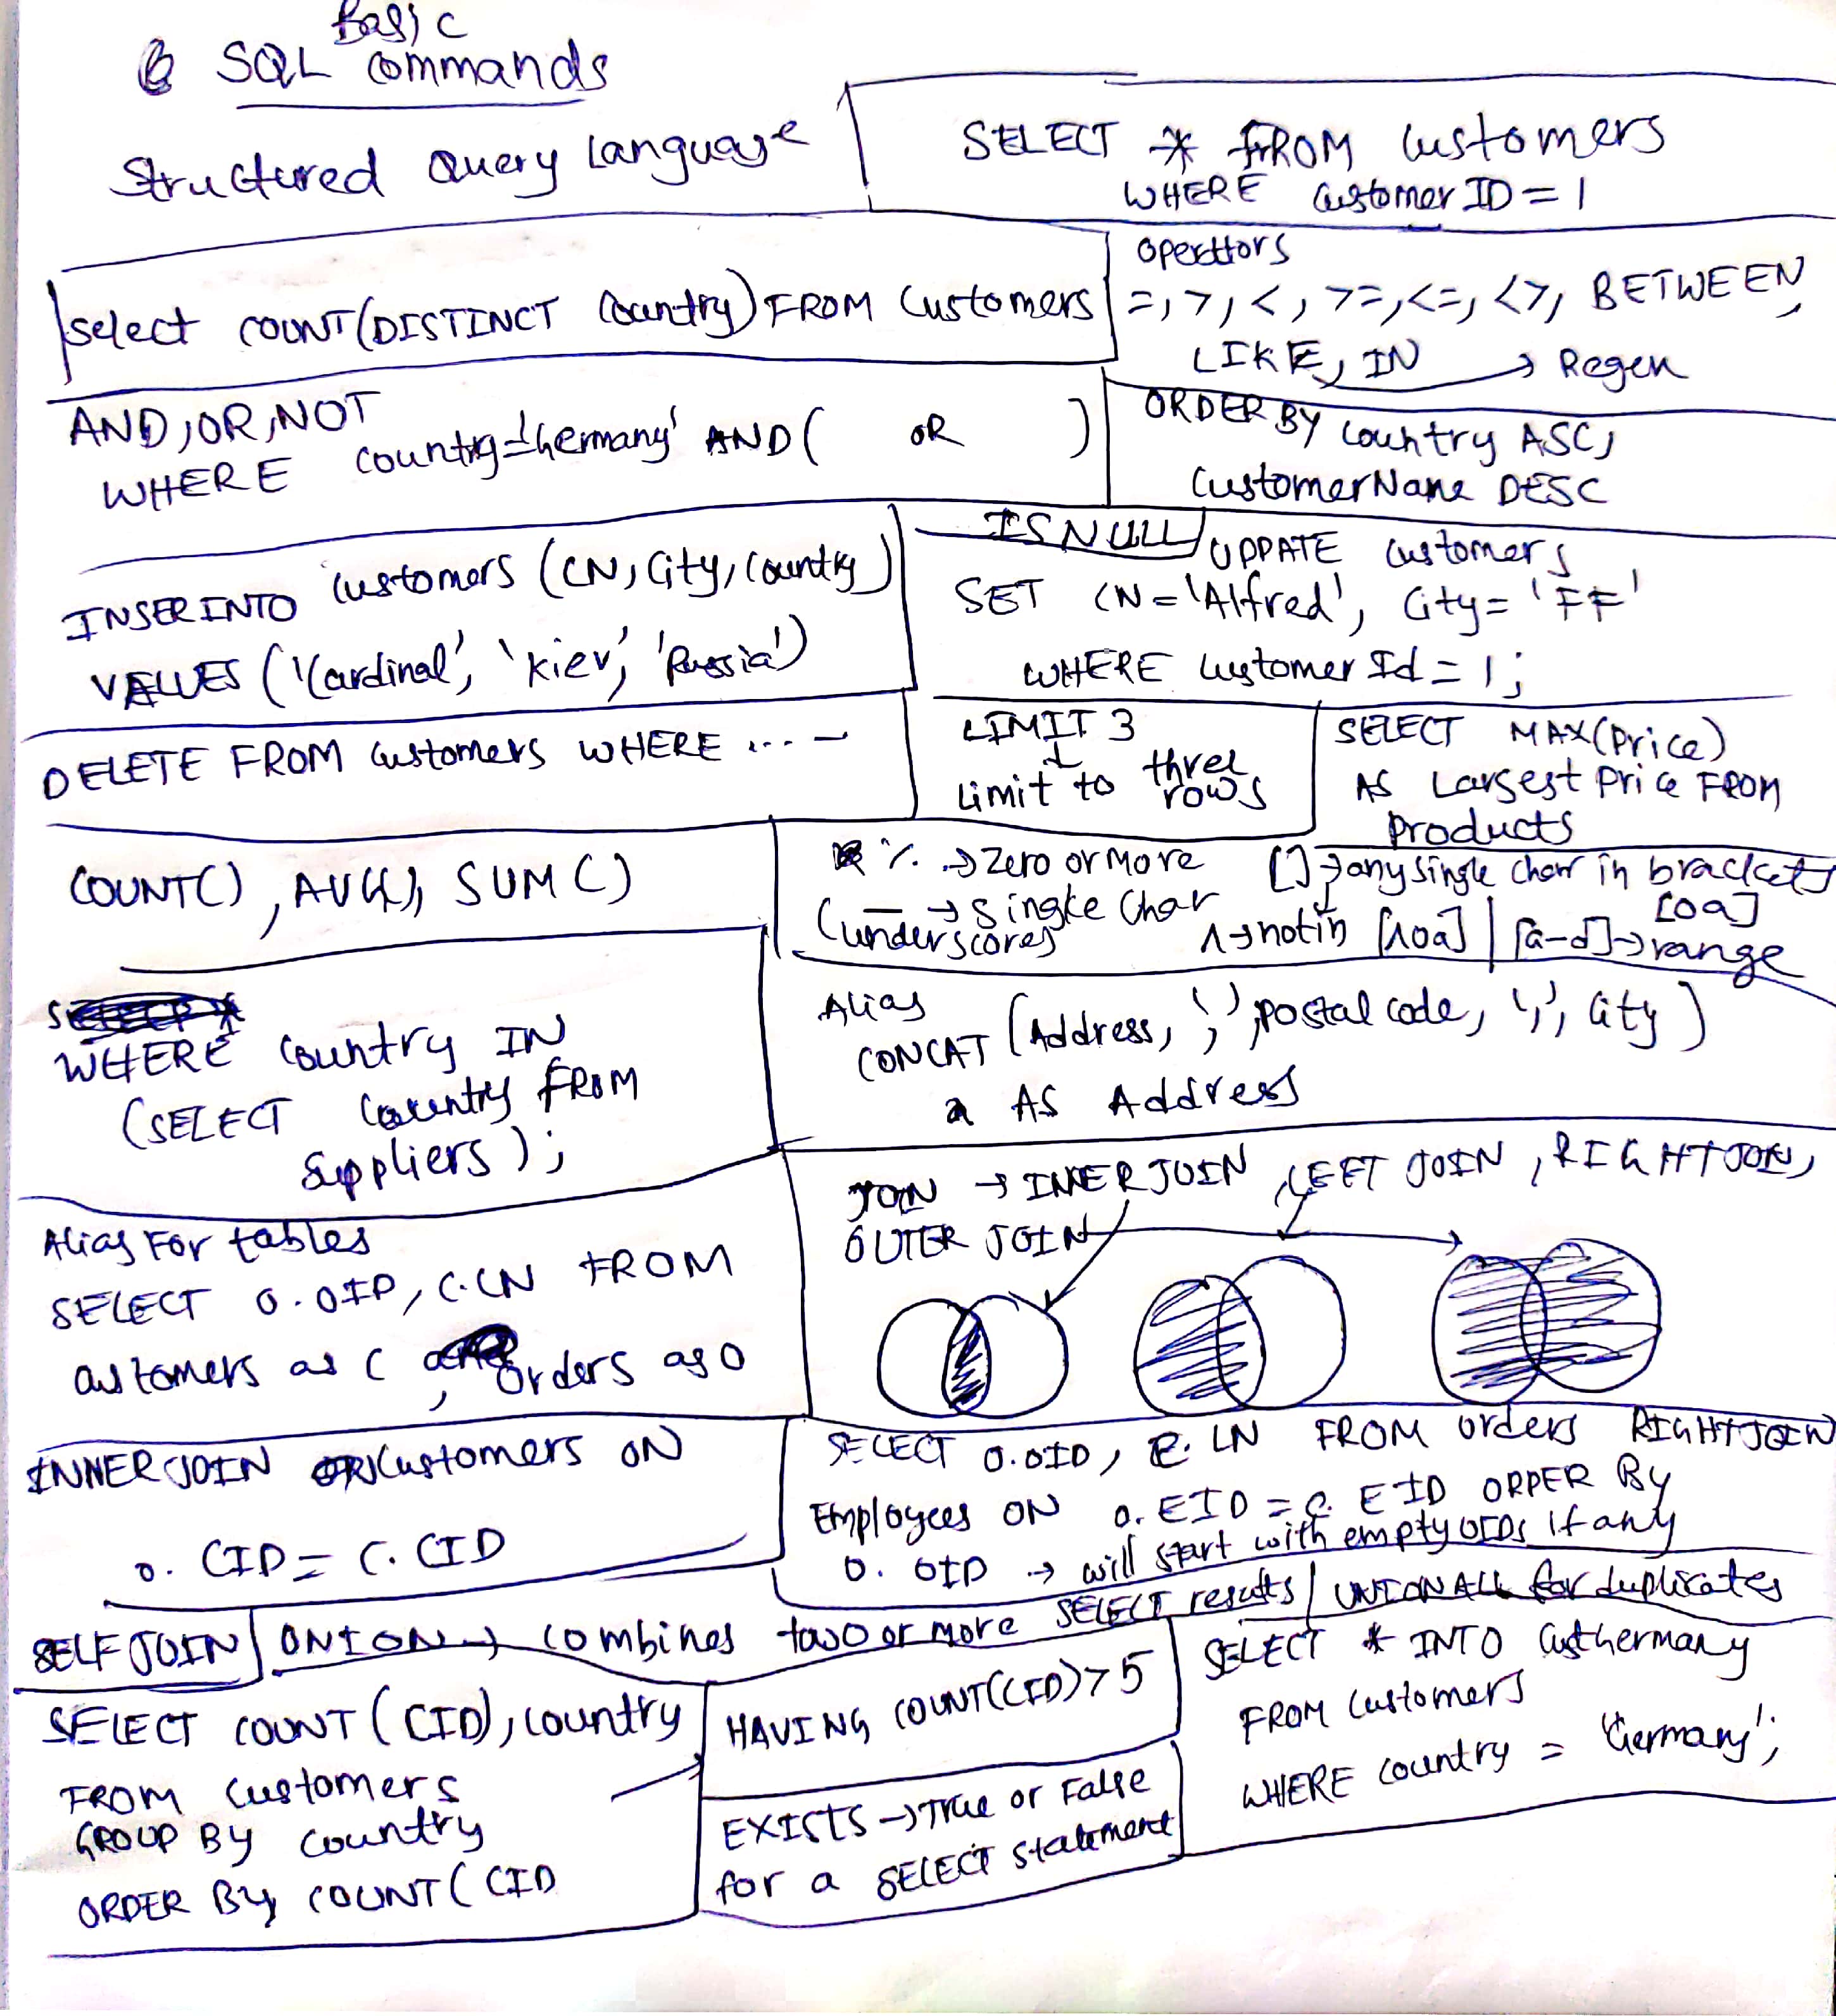 SQL Basic commands
Structured Query Language
SELECT * FROM Customers
WHERE CustomerID = 1
select COUNT(DISTINCT Country) FROM Customers
Operttors
=, >, <, >=, <=, <>, BETWEEN,
LIKE, IN → Regex
AND, OR, NOT
WHERE Country='Germany' AND ( OR )
ORDER BY Country ASC,
CustomerName DESC
INSER INTO Customers (CN, City, Country)
VALUES ('Cardinal', 'Kiev', 'Russia')
IS NULL
UPDATE Customers
SET CN = 'Alfred', City = 'FF'
WHERE CustomerId = 1;
DELETE FROM Customers WHERE ...
LIMIT 3
↓
Limit to three
rows
SELECT MAX(Price)
AS Largest Price FROM
Products
COUNT(), AVG(), SUM()
% → Zero or more
_ → Single Char
(underscores)
[] → any single char in brackets
[oa]
^ → not in [^oa] | [a-d] → range
WHERE Country IN
(SELECT Country FROM
Suppliers);
Alias
CONCAT (Address, ',', postal code, ',', City)
AS Address
JOIN → INNER JOIN, LEFT JOIN, RIGHT JOIN,
OUTER JOIN
Alias For tables
SELECT O.OID, C.CN FROM
Customers as C, Orders as O
INNER JOIN Customers ON
O.CID = C.CID
SELECT O.OID, E.LN FROM orders RIGHT JOIN
Employees ON O.EID = e.EID ORDER BY
O.OID → will start with empty OIDs if any
SELF JOIN
UNION → combines two or more SELECT results | UNION ALL for duplicates
SELECT COUNT(CID), Country
FROM Customers
GROUP BY Country
ORDER BY COUNT(CID
HAVING COUNT(CID) > 5
EXISTS → True or False
for a SELECT statement
SELECT * INTO CustGermany
FROM Customers
WHERE Country = 'Germany';